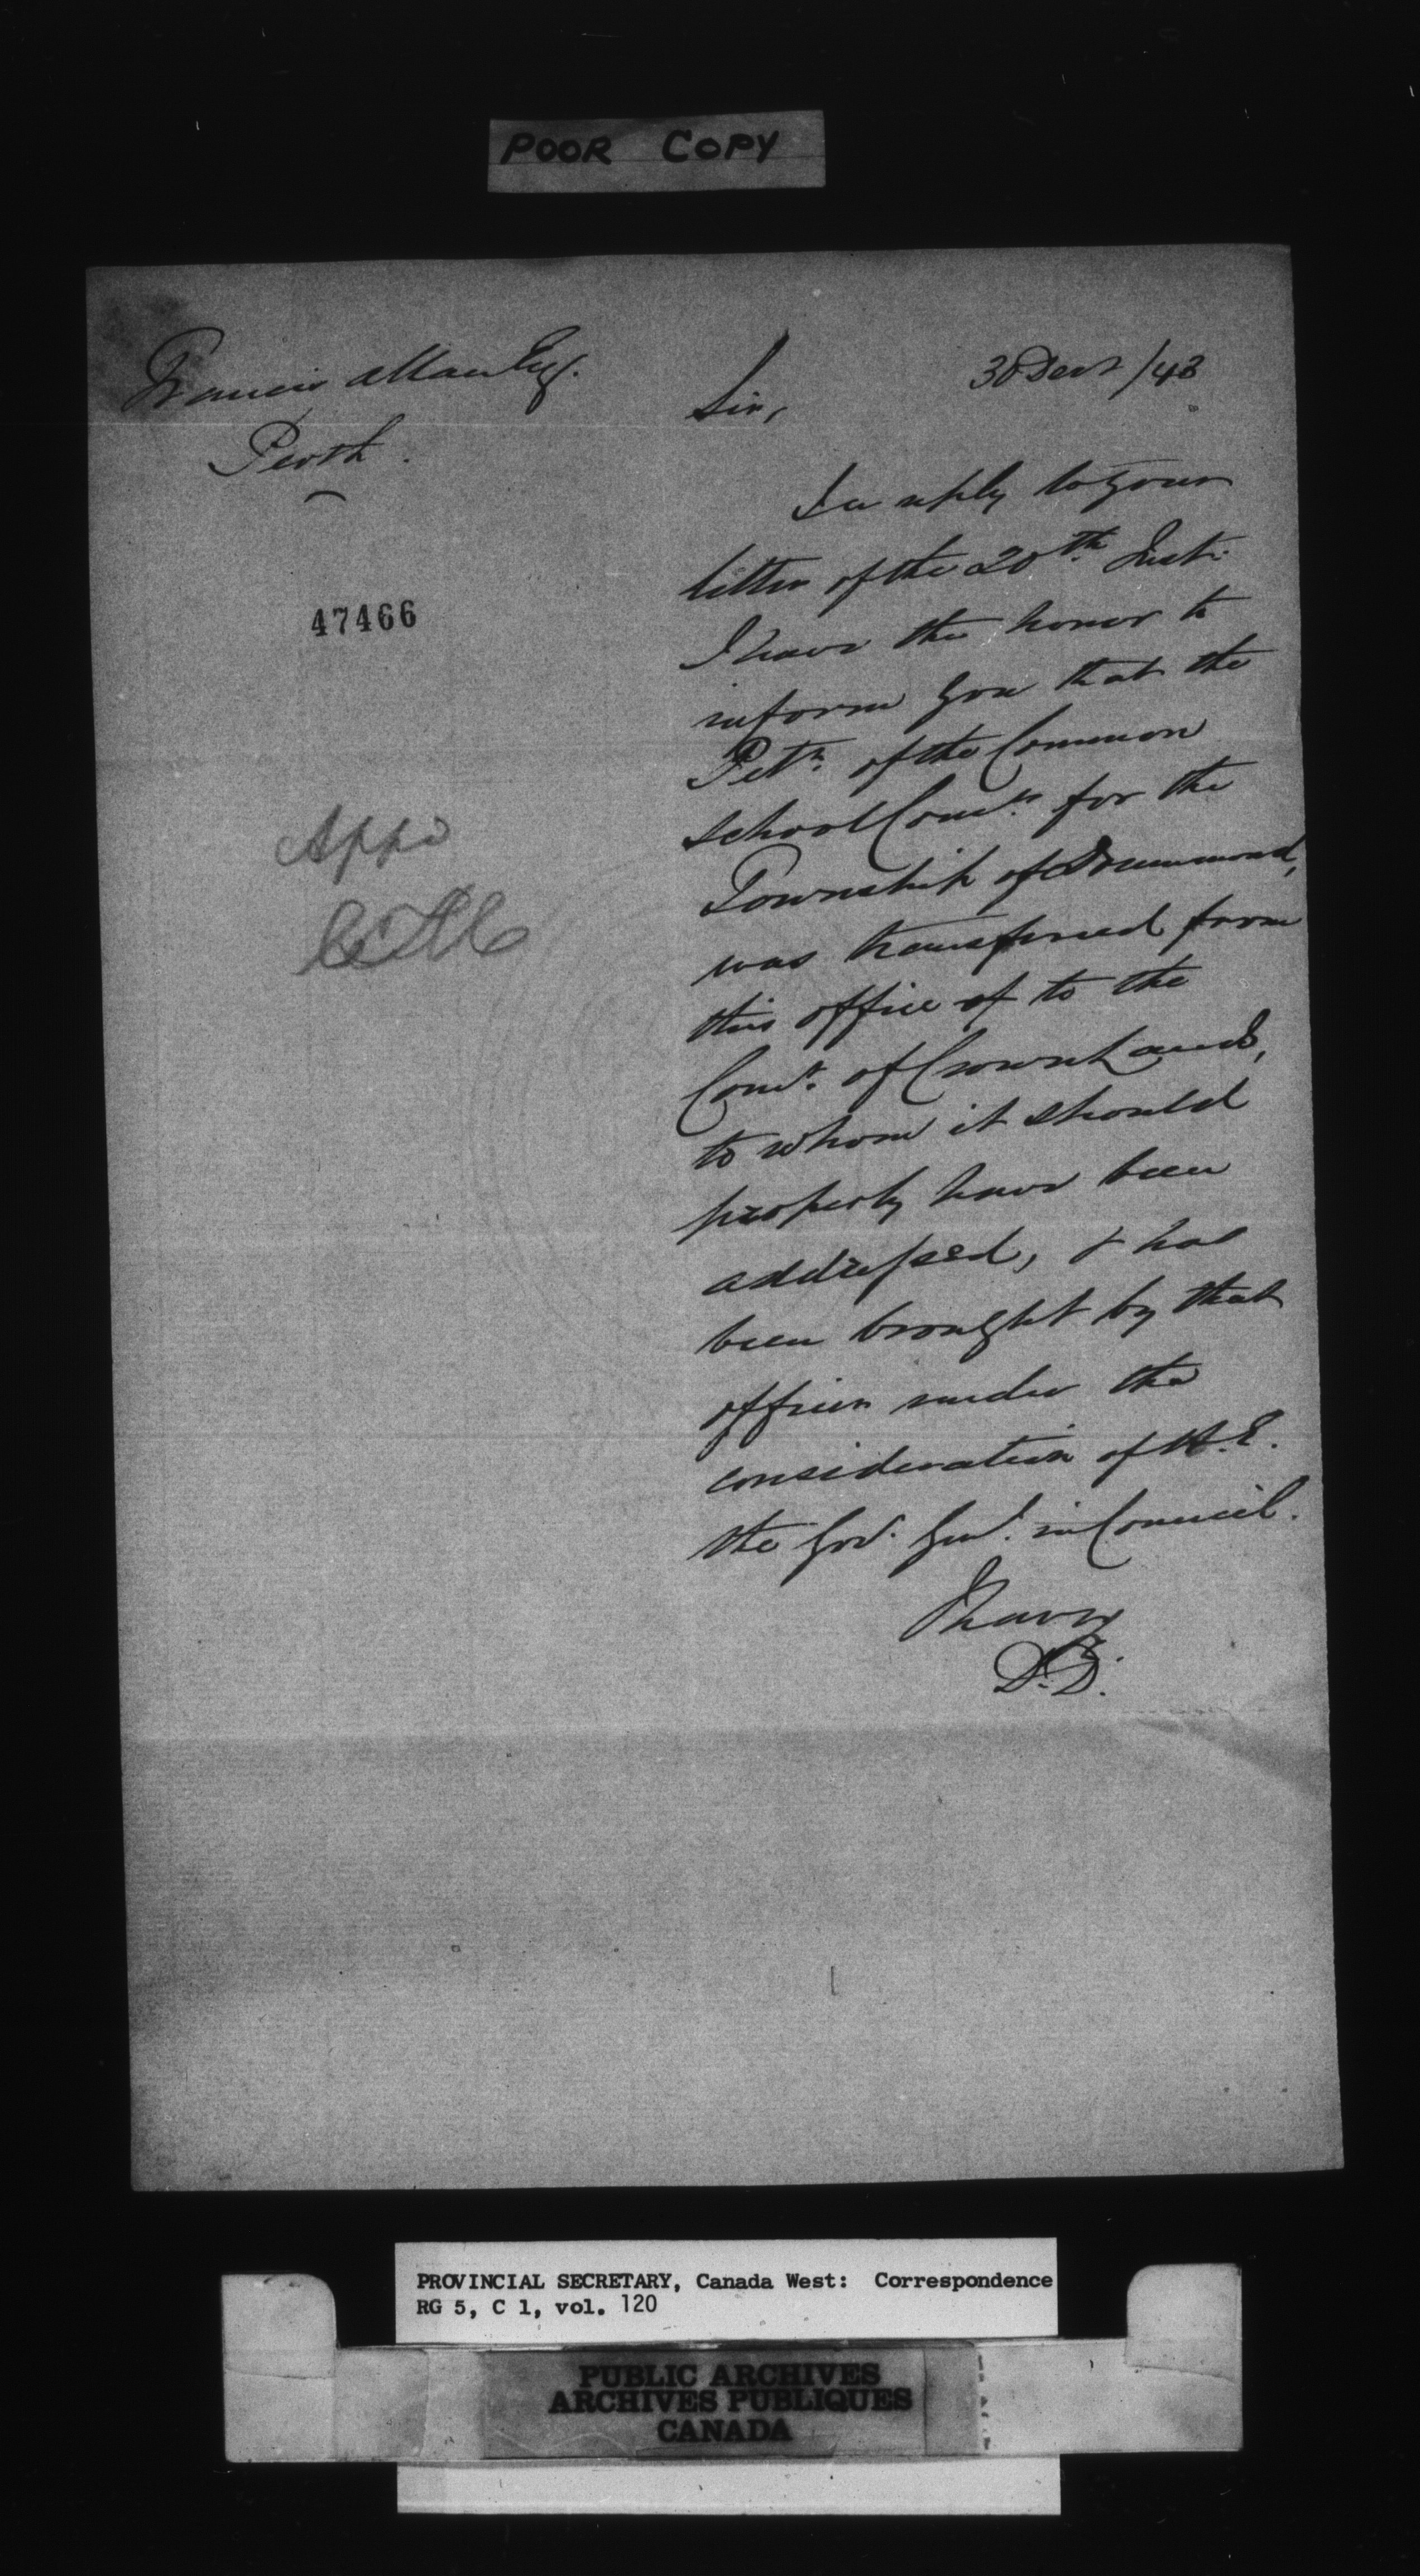 POOR COPY
Francis Allan Esq.
Perth.
30 Decr /43
Sir,
In reply to your
letter of the 20th Inst.
I have the honor to
inform you that the
Petn. of the Common
School Comrs. for the
Township of Drummond,
was transferred from
this office of to the
Comr. of Crown Lands,
to whom it should
properly have been
addressed, & has
been brought by that
officer under the
consideration of H. E.
the Gov. Genl. in Council.
I have
D.D.
47466
PROVINCIAL SECRETARY, Canada West: Correspondence
RG 5, C 1, vol. 120
PUBLIC ARCHIVES
ARCHIVES PUBLIQUES
CANADA